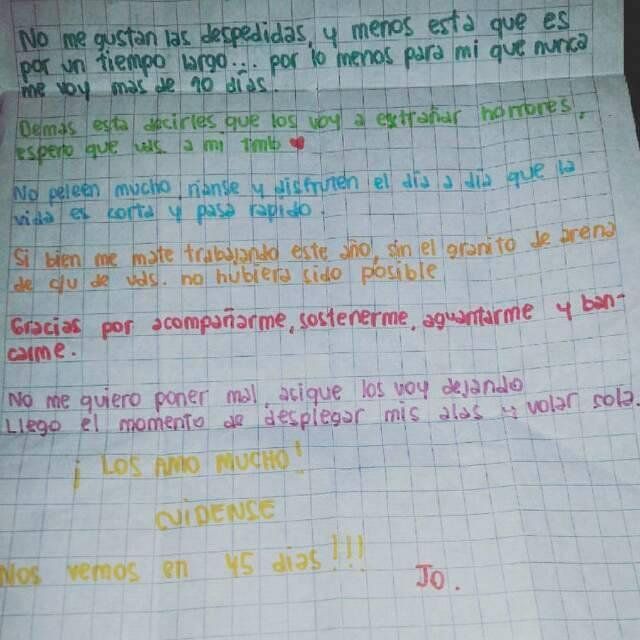 No me gustan las despedidas, y menos esta que es
por un tiempo largo... por lo menos para mi que nunca
me voy mas de 10 días.
Demas esta decirles que los voy a extrañar horrores,
espero que uds a mi tmb ♥
No peleen mucho, rianse y disfruten el dia a dia que la
vida es corta y pasa rapido.
Si bien me mate trabajando este año, sin el granito de arena
de c/u de uds. no hubiera sido posible
Gracias por acompañarme, sostenerme, aguantarme y ban-
carme.
No me quiero poner mal, asique los voy dejando
Llego el momento de desplegar mis alas y volar sola.
¡Los AMO MUCHO!
CUIDENSE
Nos vemos en 45 dias!!!
Jo.